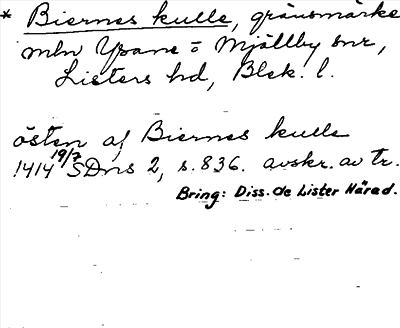 * Biernes kulle, gränsmärke
mln Ysane o Mjällby snr,
Listers hd, Blek. l.
östen af Biernes kulle
1414 19/7 SDns 2, s. 836. avskr. av tr.
Bring: Diss. de Lister Härad.